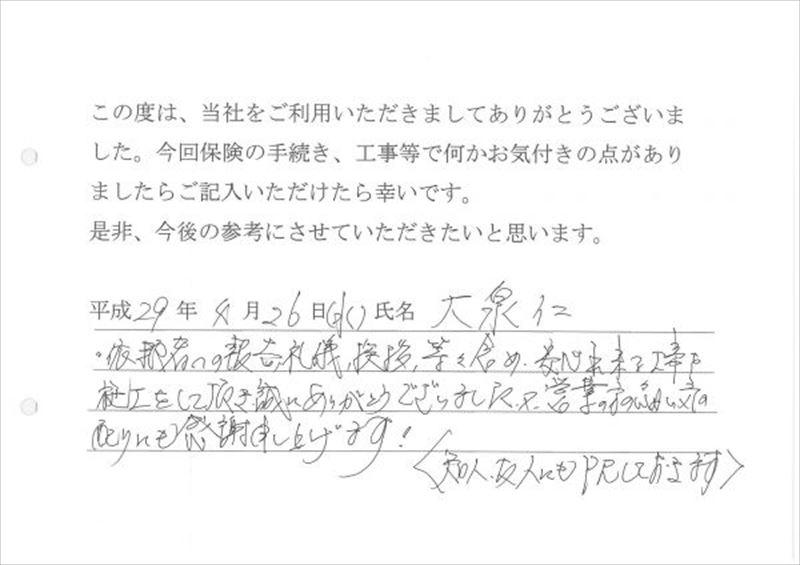 この度は、当社をご利用いただきましてありがとうございま
した。今回保険の手続き、工事等で何かお気付きの点があり
ましたらご記入いただけたら幸いです。
是非、今後の参考にさせていただきたいと思います。
平成29年 4月26日(水) 氏名 大泉 仁
・依頼者への報告、礼儀、挨拶、等々含め、安心出来る工事を
施工をして頂き誠にありがとうございました。又、営業の方の細い気
配りにも感謝申し上げます!
〈知人、友人にもPRしております〉